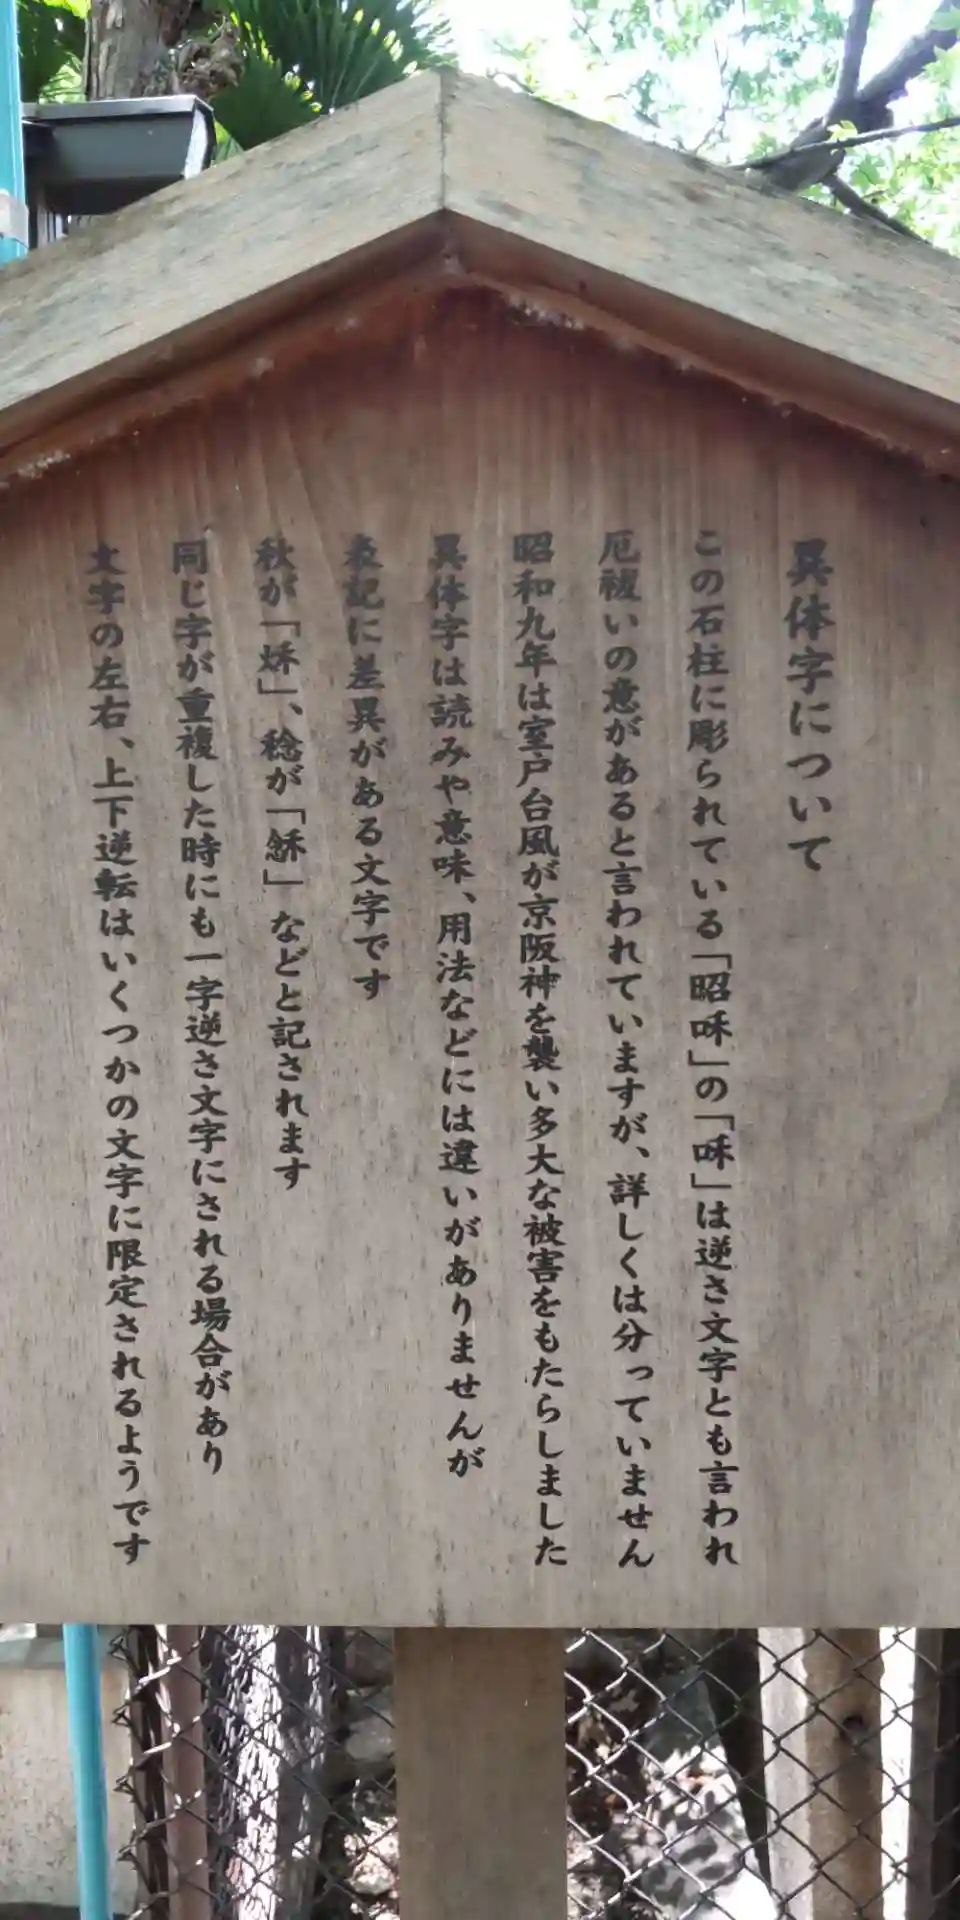 異体字について
この石柱に彫られている「昭咊」の「咊」は逆さ文字とも言われ
厄祓いの意があると言われていますが、詳しくは分っていません
昭和九年は室戸台風が京阪神を襲い多大な被害をもたらしました
異体字は読みや意味、用法などには違いがありませんが
表記に差異がある文字です
秋が「秌」、稔が「」などと記されます
同じ字が重複した時にも一字逆さ文字にされる場合があり
文字の左右、上下逆転はいくつかの文字に限定されるようです